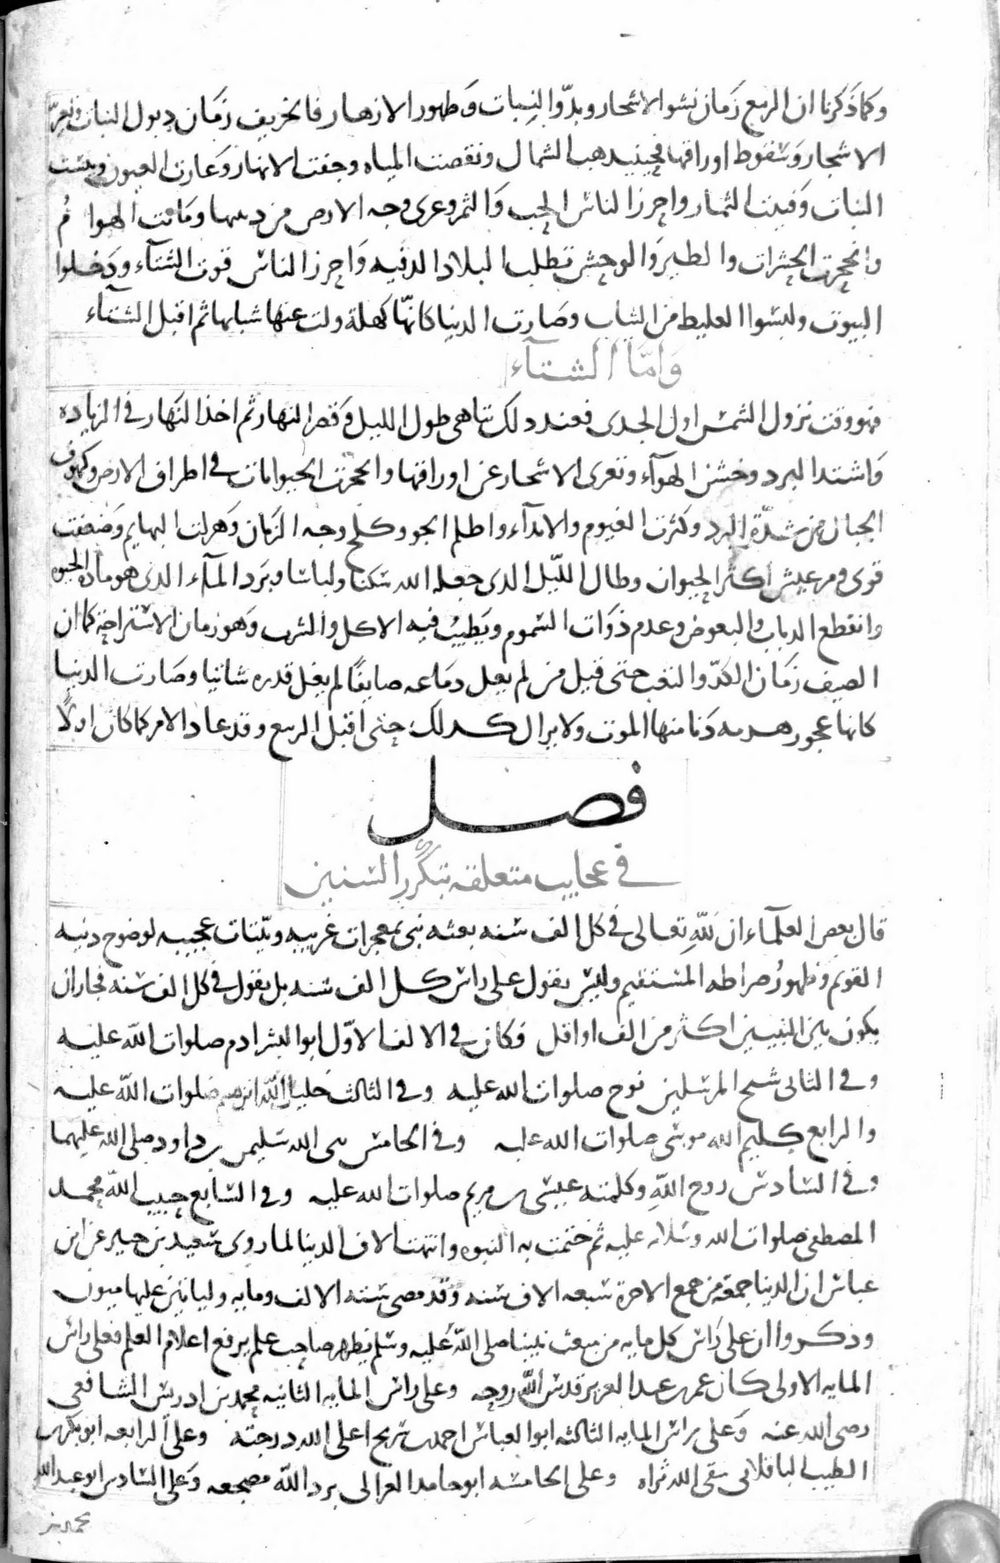 وكما ذكرنا ان الربيع زمان نشو الاشجار وبدو النبات وظهور الازهار فالخريف زمان ذبول النبات وتعري
الاشجار وسقوط اوراقها فحينئذ هب الشمال ونقصت المياه وجفت الانهار وغارت العيون ويبست
النبات وفنيت الثمار واحرز الناس الحب والثمر وعري وجه الارض من زينتها وماتت الهوام
وانجحرت الحشرات والطير والوحش تطلب البلاد الدفيه واحرز الناس قوت الشتاء ودخلوا
البيوت ولبسوا الغليظ من الثياب وصارت الدنيا كانها كهلة ولت عنها شبابها ثم اقبل الشتاء
واما الشتاء
فهو وقت نزول الشمس اول الجدى فعند ذلك تناهى طول الليل وقصر النهار ثم اخذ النهار في الزياده
واشتد البرد وخشن الهواء وتعرى الاشجار عن اوراقها وانجحرت الحيوانات في اطراف الارض وكهوف
الجبال من شدة البرد وكثرت الغيوم والانداء واظلم الجو وكلح وجه الزمان وهزلت البهايم وضعفت
قوى ومر عيش اكثر الحيوان وطال الليل الذى جعله الله سكنا ولباسا وبرد الماء الذى هو مادة الحيوه
وانقطع الذباب والبعوض وعدم ذوات السموم ويطيب فيه الاكل والشرب وهو زمان الاستراحة كما ان
الصيف زمان الكد والتعب حتى قيل من لم يغل دماغه صايفا لم يغل قدره شاتيا وصارت الدنيا
كانها عجوز هرمه دنا منها الموت ولا يزال كذلك حتى اقبل الربيع وقد عاد الامر كما كان اولا
فصل
في عجايب متعلقه بتكرر السنين
قال بعض العلماء ان لله تعالى في كل الف سنه بعثه نبى بمعجزات غريبه وبينات عجيبه لوضوح دينه
القويم وظهور صراطه المستقيم وليس يقول على راس كل الف سنه بل يقول في كل الف سنه فجاز ان
يكون بين النبيين اكثر من الف او اقل فكان في الالف الاول ابو البشر ادم صلوات الله عليه
وفي الثانى شيخ المرسلين نوح صلوات الله عليه وفي الثالث خليل الله ابرهيم صلوات الله عليه
والرابع كليم الله موسى صلوات الله عليه وفي الخامس نبى الله سليمن بن داود صلى الله عليهما
وفي السادس روح الله وكلمته عيسى بن مريم صلوات الله عليه وفي السابع حبيب الله محمد
المصطفى صلوات الله وسلامه عليه ثم ختمت به النبوه وانتهت الاف الدنيا لما روى سعيد بن جبير عن ابن
عباس ان الدنيا جمعة من جمع الاخرة سبعه الاف سنه وقد مضى ستة الالف ومايه ولياتين عليها ميون
وذكروا ان على راس كل مايه من مبعث نبينا صلى الله عليه وسلم يظهر صاحب علم يرفع اعلام العلم فعلى راس
المايه الاولى كان عمر بن عبد العزيز قدس الله روحه وعلى راس المايه الثانيه محمد بن ادريس الشافعى
رضى الله عنه وعلى راس المايه الثالثه ابو العباس احمد بن سريح اعلى الله درجته وعلى الرابعه ابو بكر بن
الطيب الباقلانى سقى الله ثراه وعلى الخامسه ابو حامد الغزالى برد الله مضجعه وعلى السادس ابو عبد الله
محمد بن